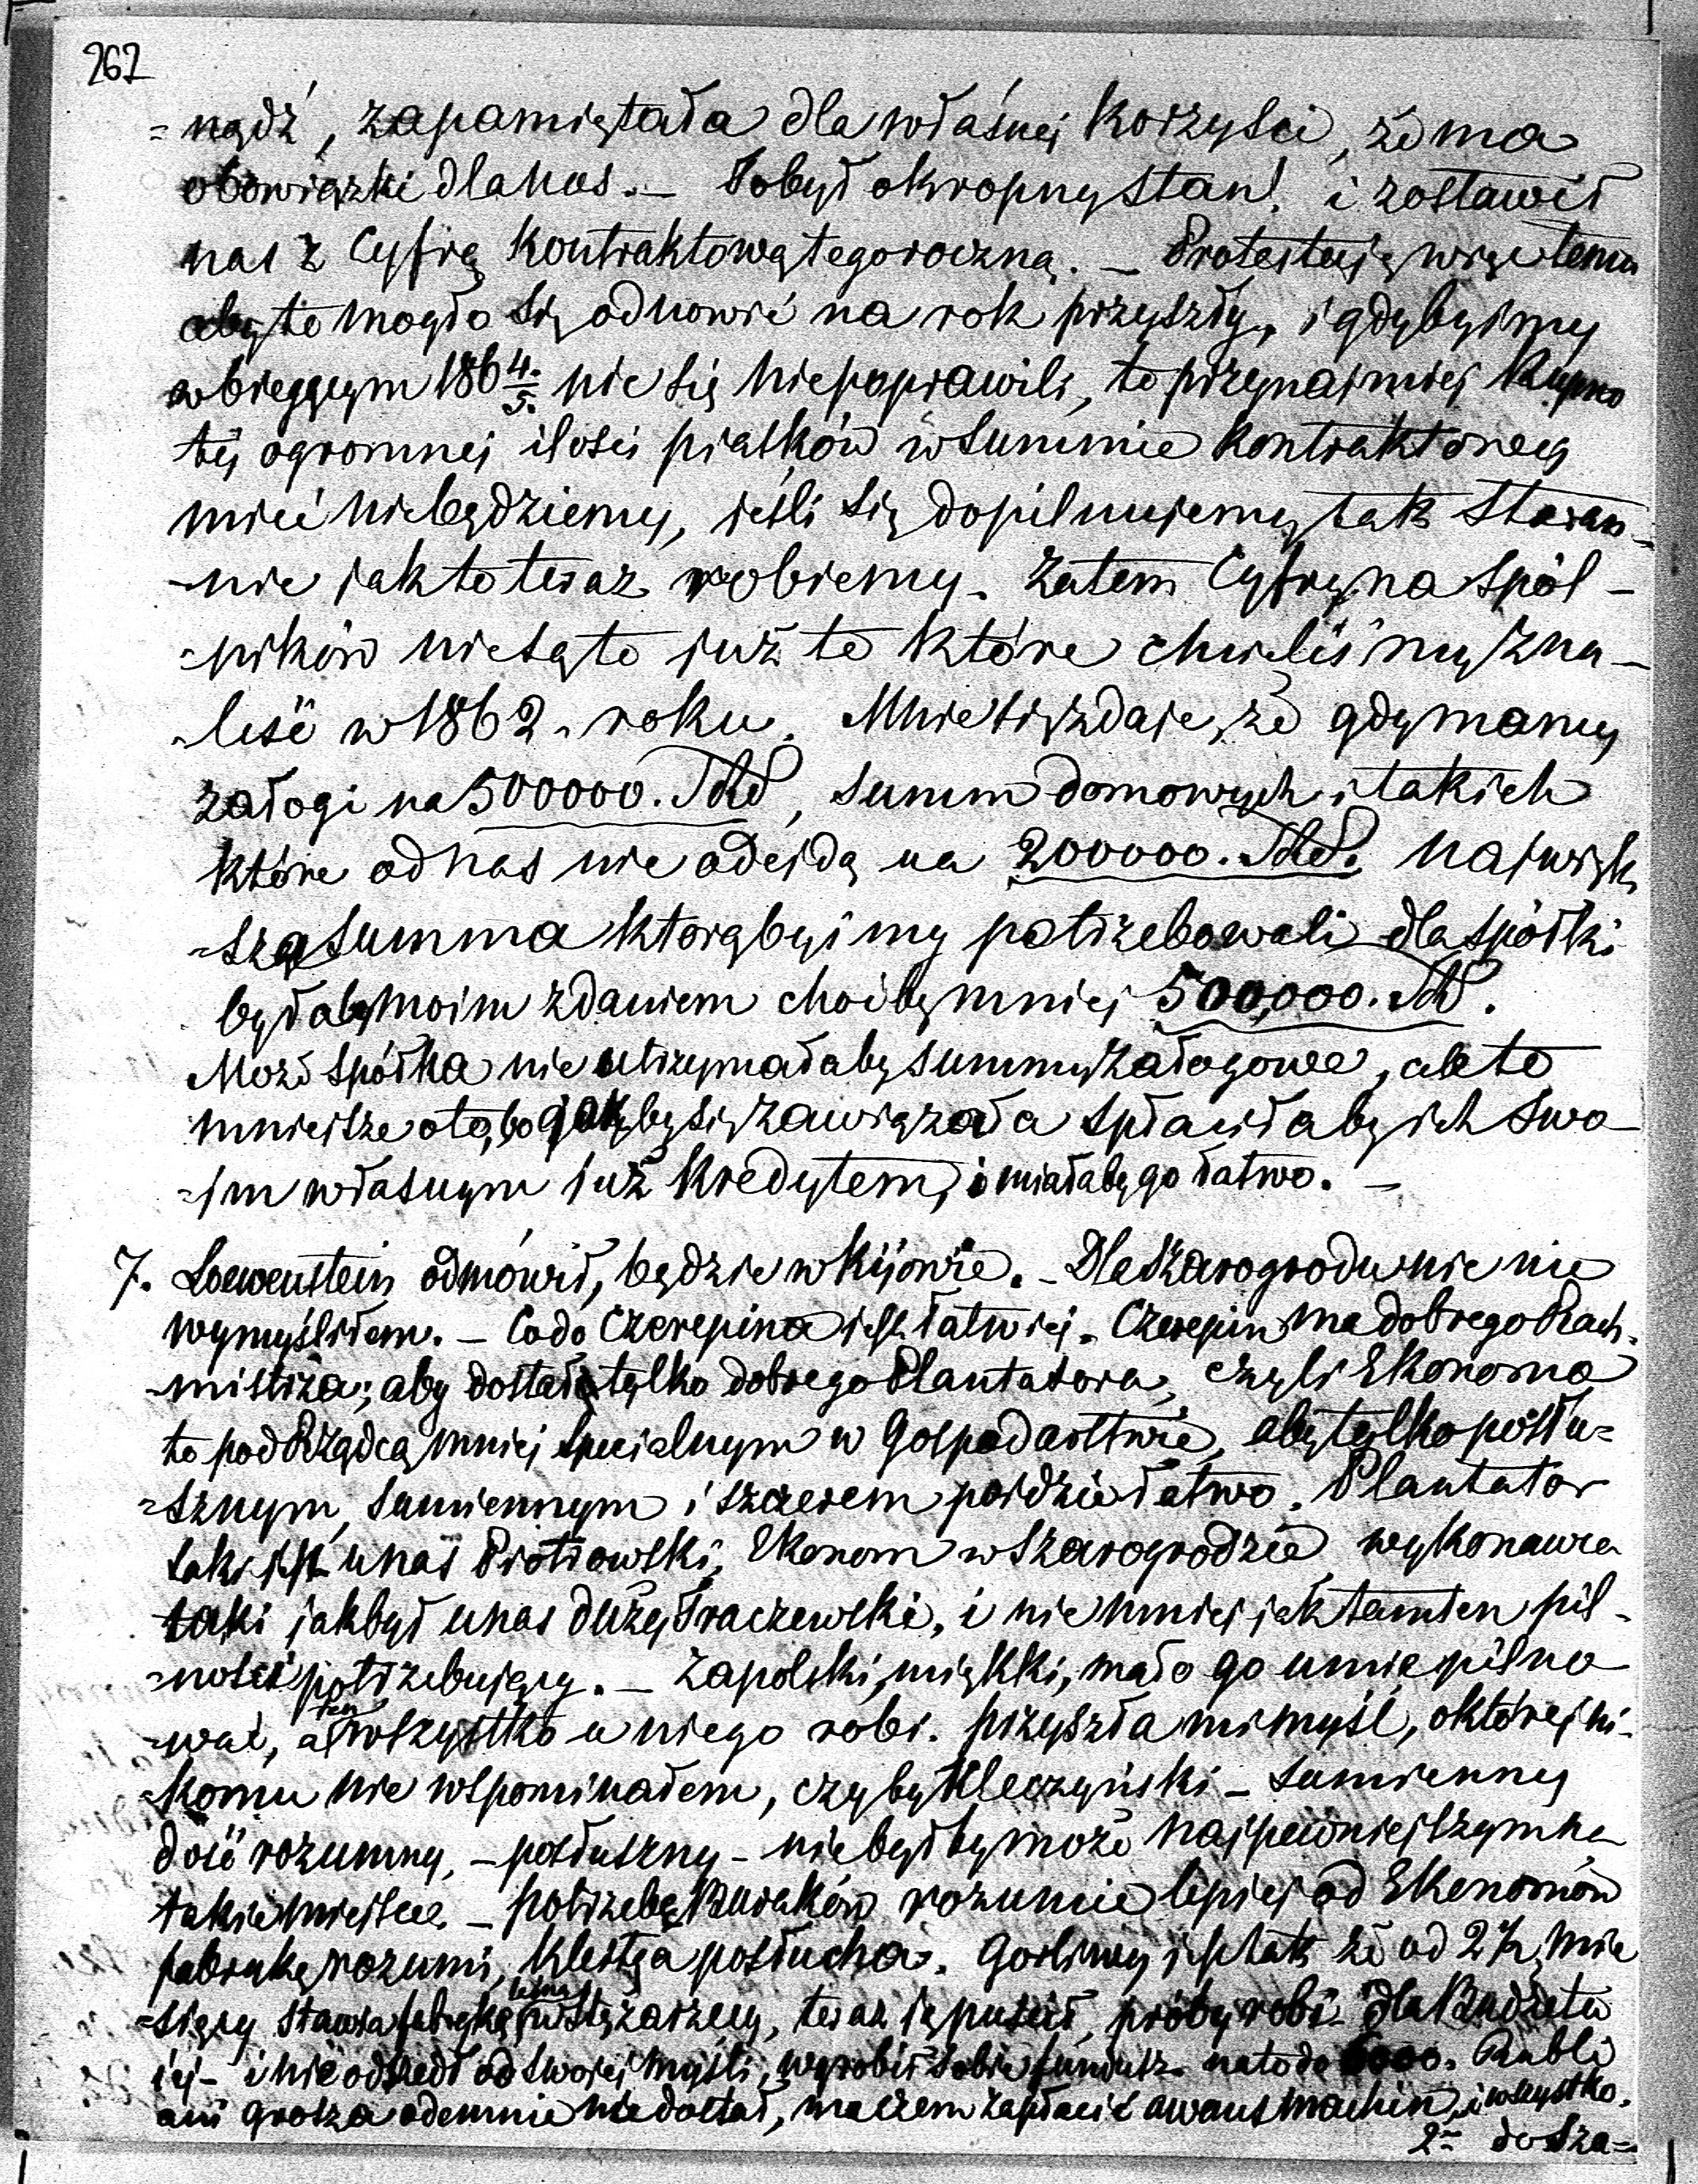 262
= nądź, zapamiętała dla właśnej korzyści, że ma
obowiązki dla nas. — To był okropny stan! i zostawił
nas z Cyfrą Kontraktową tegoroczną. — Protestuję więc temu
aby to mogło się odnowić na rok przyszły, i gdybyśmy
w bieżącym 186 4/5. nic się niepoprawili, to przynajmniej Kupno
tej ogromnej ilości piasków w summie kontraktowej
mieć niebędziemy, jeśli się dopilnujemy tak staran-
-nie jak to teraz robiemy. Zatem Cyfry na spól-
-ników nie są to już te które chcieliśmy zna-
-leść w 1862. roku. Mnie się zdaje, że gdy mamy
załogi na 500000. , summ domowych i takich
które od nas nie odejdą na 200000. najwięk
-szą summa którąbyśmy potrzebowali dla spółki
byłaby moim zdaniem choiby mniej 500,000.
Może spółka nie utrzymałaby summy załogowe, ale to
mniejsze oto, bo gdyby się zawiązała spłaciłaby ich swo-
-im własnym już kredytem, i miałaby go łatwo. —
7. Loewenstein odmówił, będzie w Kijowie. — Dla Szarogrodu nic nie
wymyśliłem. — Co do Czerepina jest łatwiej. Czerepin ma dobrego Rach-
-mistrza; aby dostał tylko dobrego Plantatora, czyli Ekonoma
to pod Rządcą mniej specialnym w Gospodarstwie, aby tylko posłu=
=sznym, sumiennym i szczerem pójdzie łatwo. Plantator
taki jest u nas Piotrowski, Ekonom w Szarogrodzie, wykonawca
taki jak był u nas duży Traczewski, i nie mniej jak tamten pil-
-ności potrzebujący. — Zapolski, miękki, mało go umie pilno
-wać, a ten wszystko u niego robi. przyszła mi myśl, o której ni-
-komu nie wspominałem, czyby Kleczyński — sumienny
dość rozumny, — posłuszny — nie byłby może najpewniejszym na
takie miejsce. — potrzebę Buraków rozumie lepiej od Ekonomów
fabrykę rozumi, posłucha. Gorliwy jest tak że od 2½ mie
-sięcy stawia fabrykę, teraz ją puścił, próby robi dla Budżetu
jej — i nie odszedł od swojej myśli, wyrobił sobie fundusz na to do 6000. Rubli
ani grosza odemnie nie dostał, ma czem zapłacić awans machin, i wszystko.
2= do Sza=